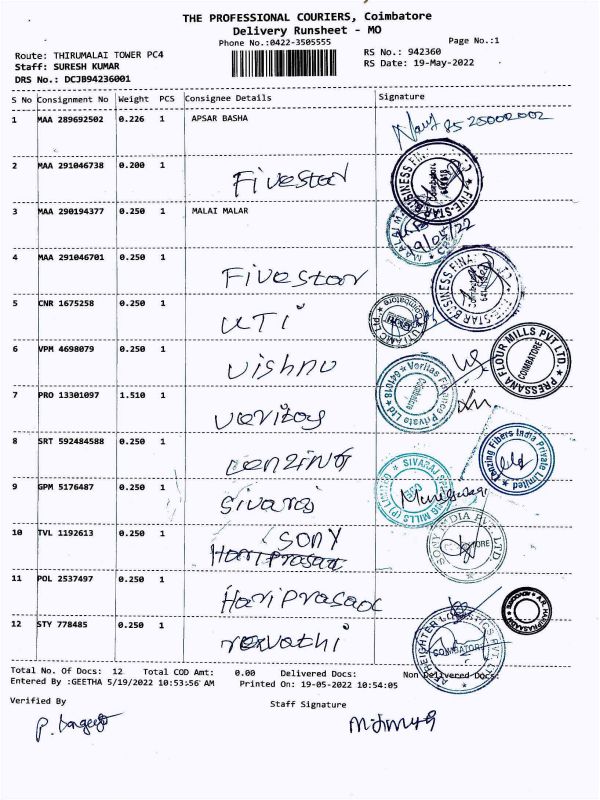 THE PROFESSIONAL COURIERS, Coimbatore
Delivery Runsheet - MO
Phone No.:0422-3505555
Page No.:1
Route: THIRUMALAI TOWER PC4
RS No.: 942360
Staff: SURESH KUMAR
RS Date: 19-May-2022
DRS No.: DCJB94236001
S No Consignment No Weight PCS Consignee Details Signature
1 MAA 289692502 0.226 1 APSAR BASHA
8525000002
2 MAA 291046738 0.200 1 Fivestar
FIVE-STAR BUSINESS FINA
Coimbatore
3 MAA 290194377 0.250 1 MALAI MALAR
19/05/22
4 MAA 291046701 0.250 1 Fivestar
FIVE-STAR BUSINESS FINA
5 CNR 1675258 0.250 1 UTI
UTI AMC
6 VPM 4698079 0.250 1 Vishnu
PRESSANA FLOUR MILLS PVT LTD.
COIMBATORE
7 PRO 13301097 1.510 1
Veritas Finance Private Ltd
641018
8 SRT 592484588 0.250 1 Lenzing
Fibers India Private Limited
9 GPM 5176487 0.250 1 Sivaraj
SIVARAJ SPINNING MILLS (P) LIMITED
10 TVL 1192613 0.250 1 SONY
Hari Prasad
SONY INDIA PVT. LTD
11 POL 2537497 0.250 1 Hari Prasad
12 STY 778485 0.250 1 revathi
COIMBATORE
Total No. Of Docs: 12 Total COD Amt: 0.00 Delivered Docs: Non Delivered Docs:
Entered By :GEETHA 5/19/2022 10:53:56 AM Printed On: 19-05-2022 10:54:05
Verified By
Staff Signature